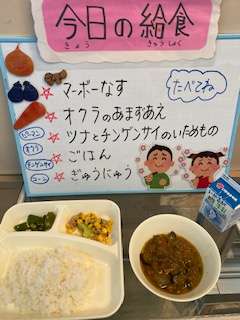 今日の給食
きょう きゅうしょく
マーボーなす
たべてね
オクラのあまずあえ
ツナとチンゲンサイのいためもの
ごはん
ぎゅうにゅう
ピーマン
オクラ
チンゲンサイ
コーン